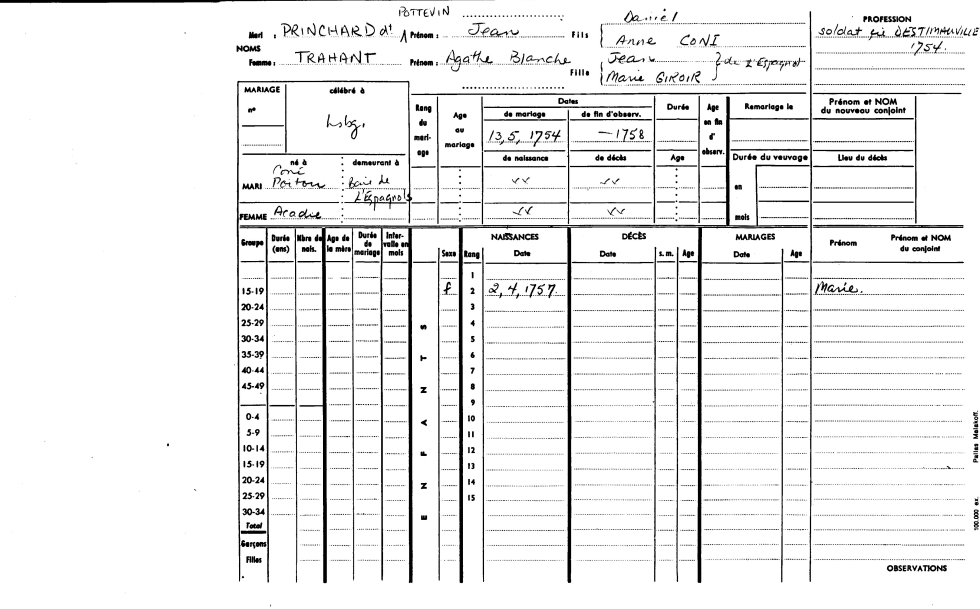 POTTEVIN
Mari : PRINCHARD dt Prénom : Jean Fils Daniel
Anne CONI
NOMS
Femme : TRAHANT Prénom : Agathe Blanche Fille Jean de L'Espagnol
Marie GIROIR
PROFESSION
soldat DESTIMAUVILLE
1754.
MARIAGE célébré à
n° Lsbg.
Rang du mari-age
Age au mariage
Dates
de mariage de fin d'observ.
13, 5, 1754 – 1758
de naissance de décès
Durée
Age
Age en fin d' observ.
Remariage le
Durée du veuvage
en
mois
Prénom et NOM du nouveau conjoint
Lieu du décès
né à demeurant à
MARI Poitou Baie de L'Espagnols
FEMME Acadie
Groupe Durée (ans) Nbre de nais. Age de la mère Durée de mariage Inter-valle en mois Sexe Rang NAISSANCES Date DÉCÈS Date s. m. Age MARIAGES Date Age Prénom Prénom et NOM du conjoint
1
15-19 f 2 2, 4, 1757 Marie.
20-24 3
25-29 4
30-34 5
35-39 6
40-44 7
45-49 8
9
0-4 10
5-9 11
10-14 12
15-19 13
20-24 14
25-29 15
30-34
Total
Garçons
Filles
ENFANTS
OBSERVATIONS
100.000 ex. Pallas Malakoff.